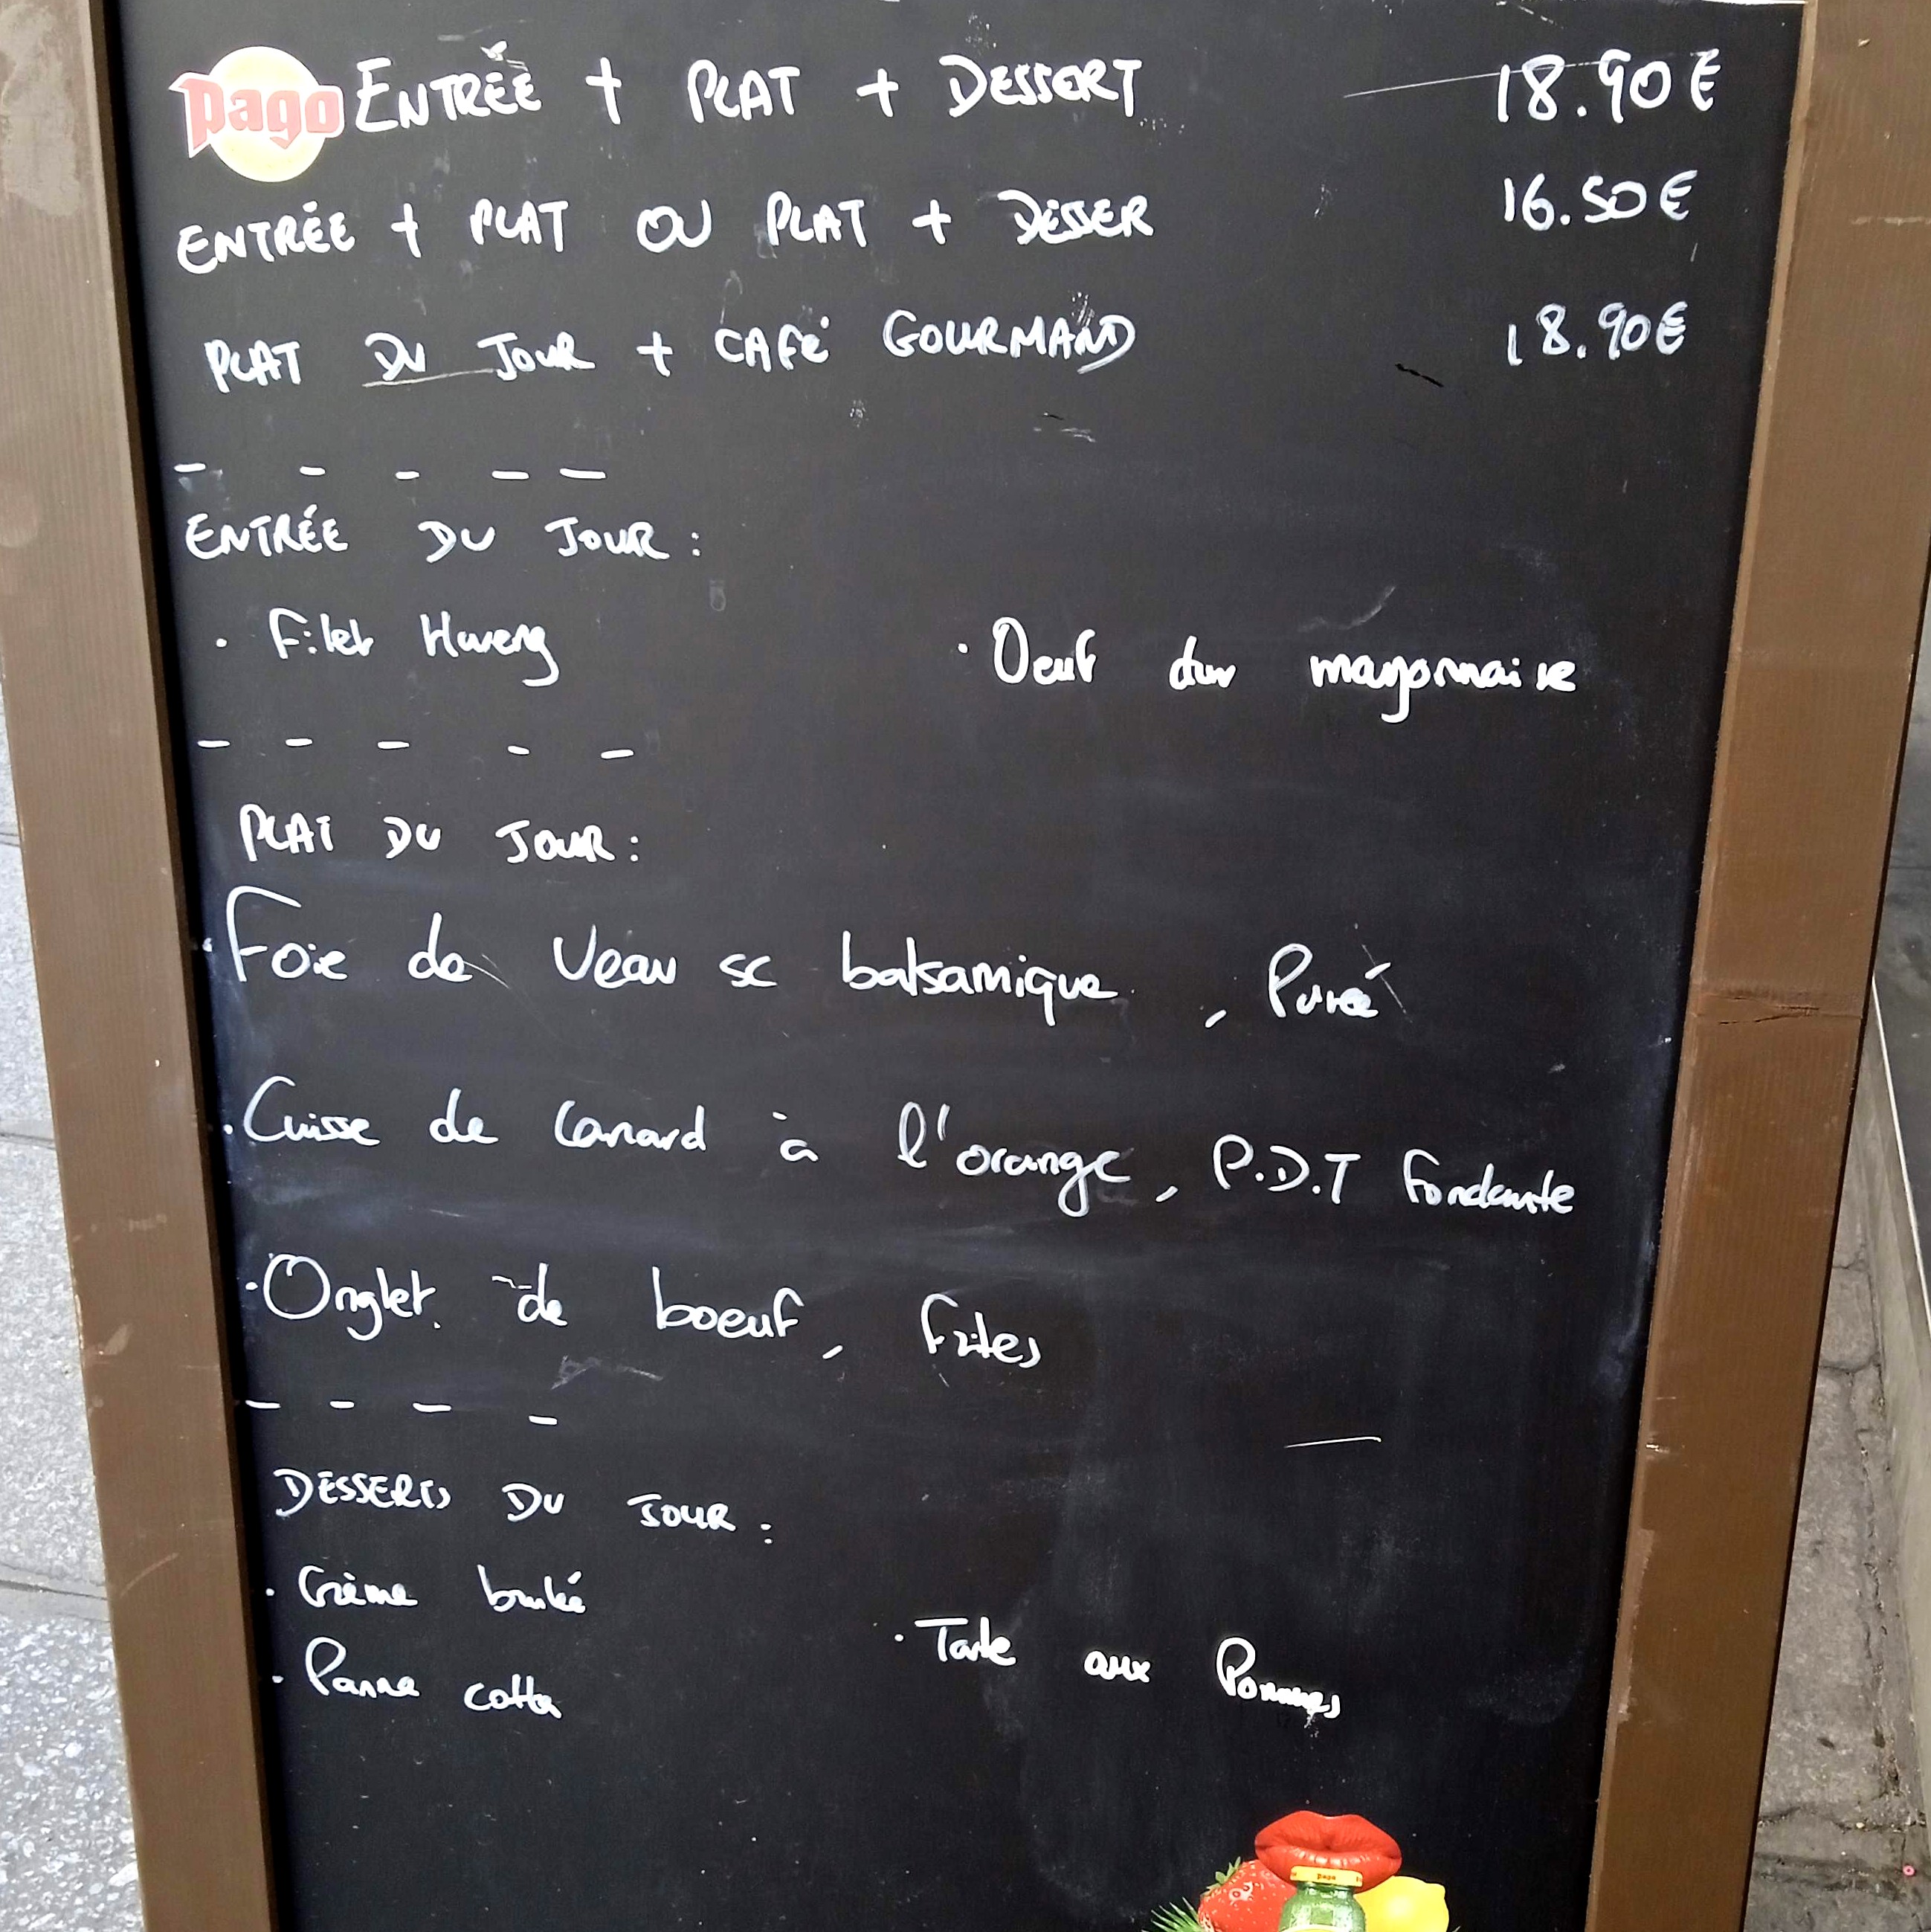 pago ENTRÉE + PLAT + DESSERT 18.90€
ENTRÉE + PLAT OU PLAT + DESSER 16.50€
PLAT DU JOUR + CAFÉ GOURMAND 18.90€
- - - - -
ENTRÉE DU JOUR:
· Filet Hareng · Oeuf dur mayonnaise
- - - - -
PLAT DU JOUR:
· Foie de Veau sc balsamique, Purée
· Cuisse de Canard à l'orange, P.D.T Fondante
· Onglet de boeuf, frites
- - - -
DESSERTS DU JOUR:
· Crème brulé
· Tarte aux Pommes
· Panna cotta
pago